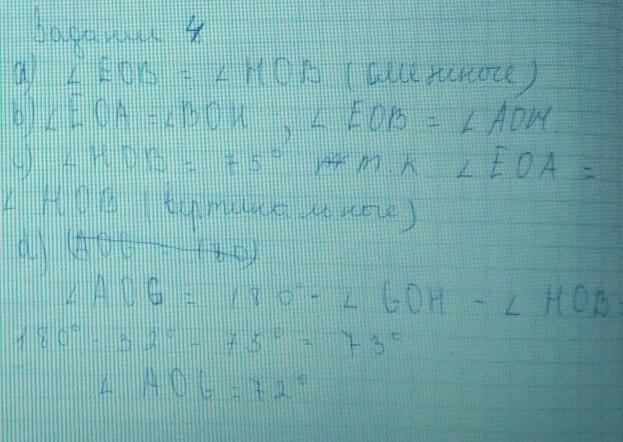 Задание 4
a) ∠EOB = ∠HOB (смежные)
b) ∠EOA = ∠BOH, ∠EOB = ∠AOH.
c) ∠HOB = 75° т.к ∠EOA =
∠HOB (вертикальные)
d) (AOG = 180)
∠AOG = 180° - ∠GOH - ∠HOB =
180° - 32° - 75° = 73°
∠AOG = 72°